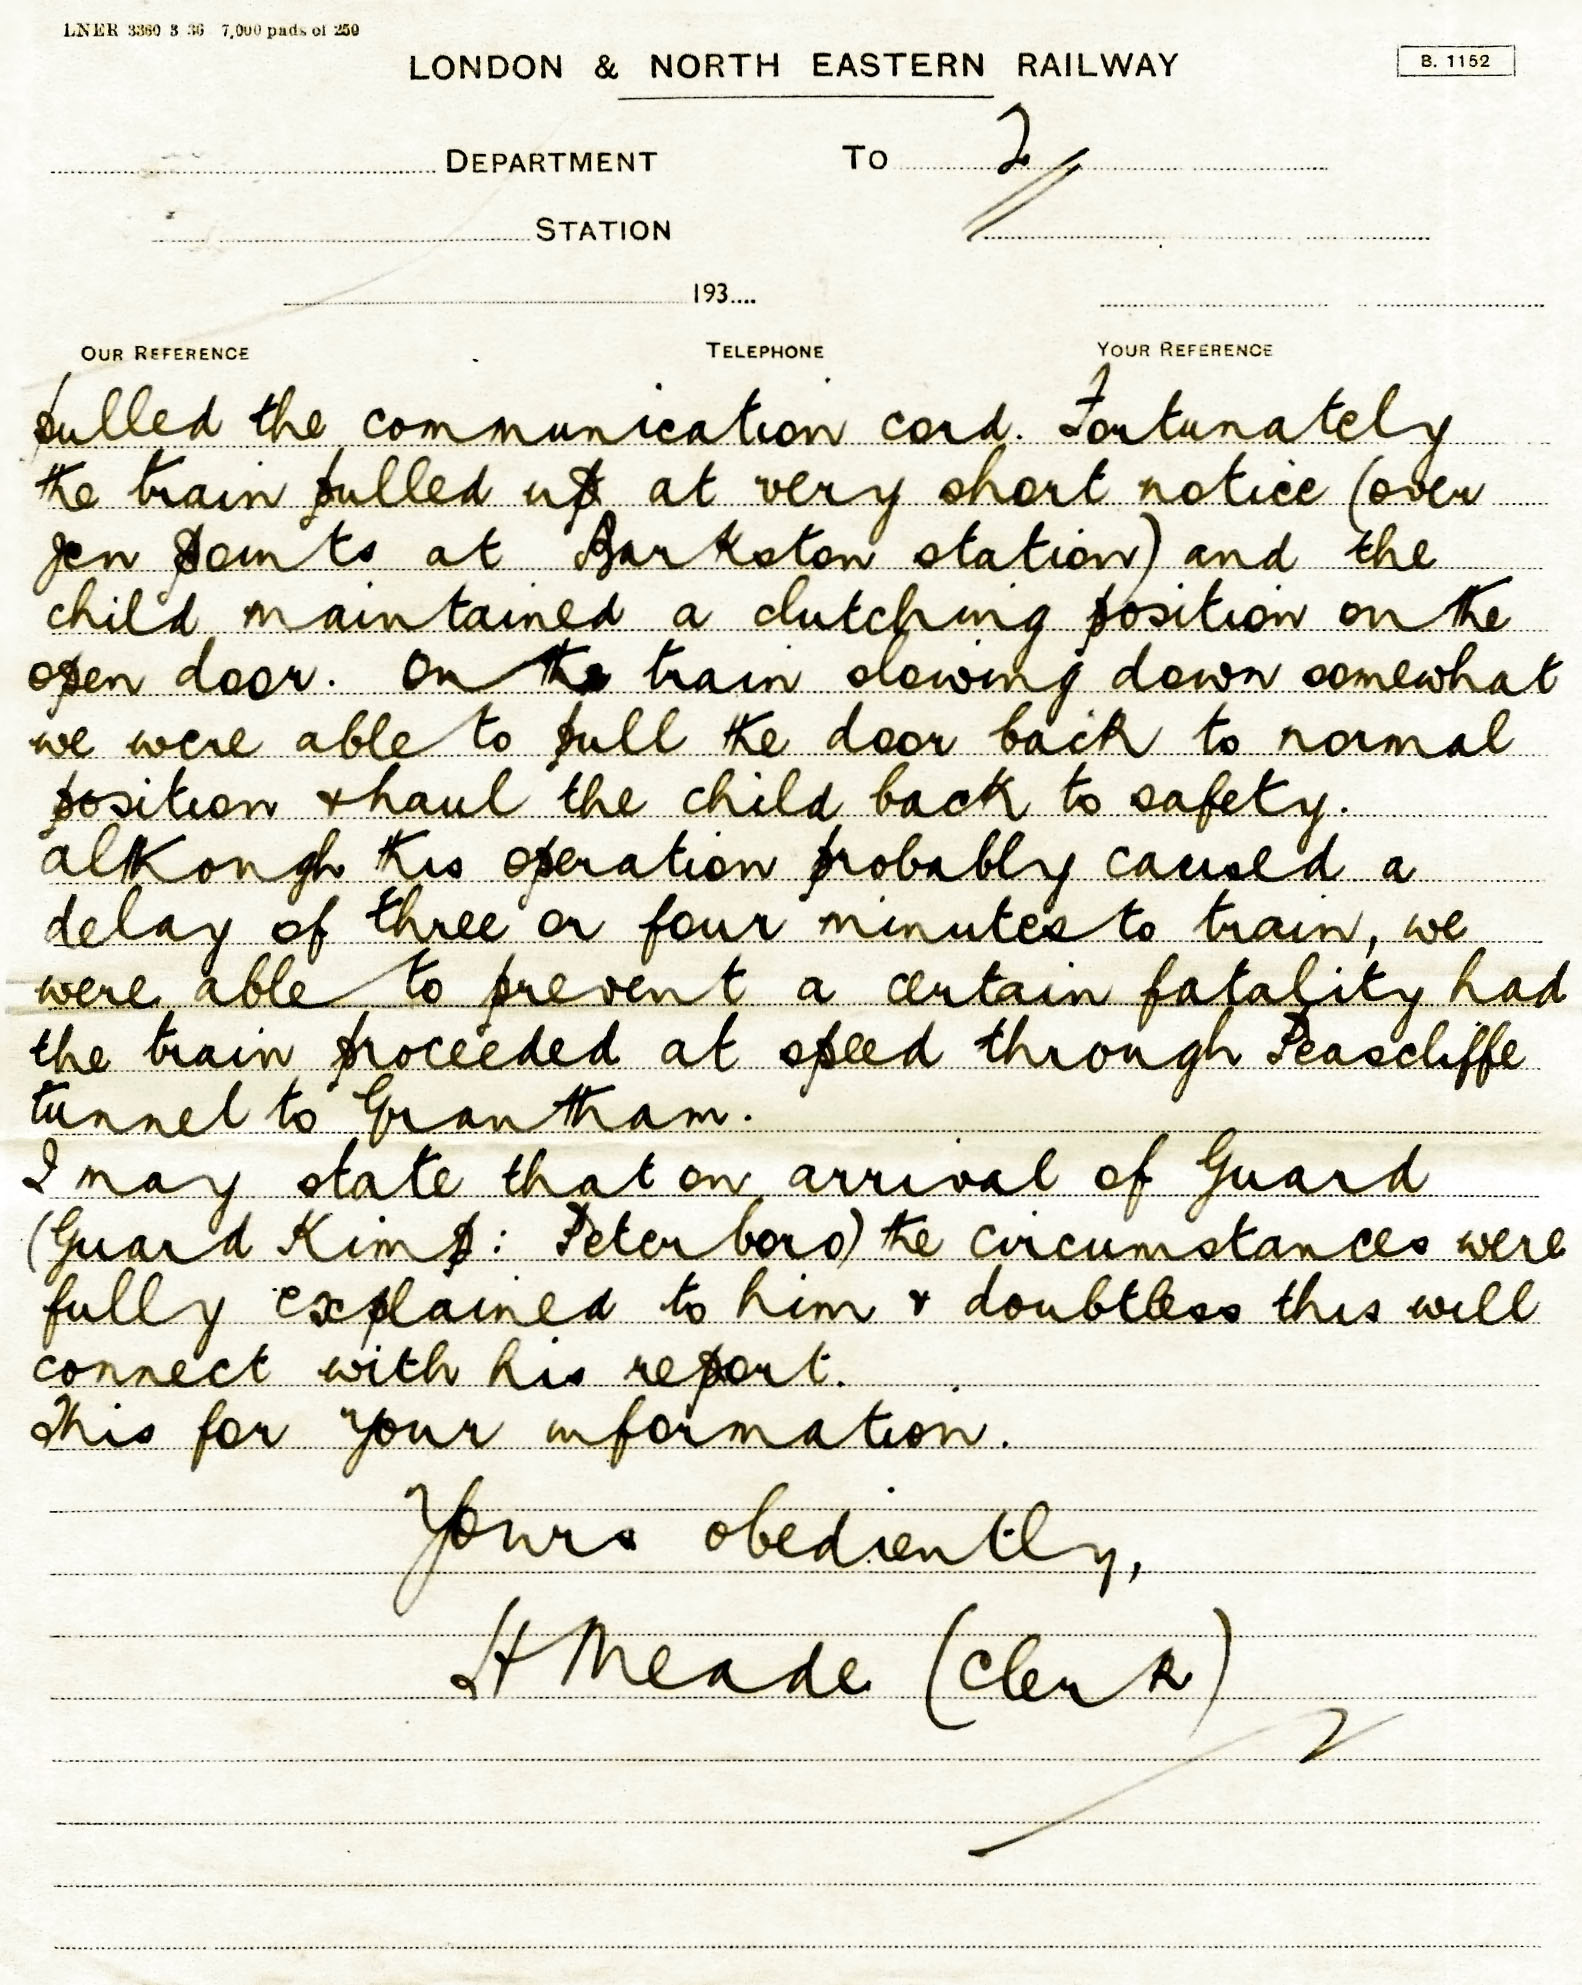 LNER 3360 3 36 7,000 pads of 250
LONDON & NORTH EASTERN RAILWAY
B. 1152
DEPARTMENT To 2
STATION
193....
OUR REFERENCE TELEPHONE YOUR REFERENCE
pulled the communication cord. Fortunately
the train pulled up at very short notice (over
Jcn points at Barkston station) and the
child maintained a clutching position on the
open door. On the train slowing down somewhat
we were able to pull the door back to normal
position & haul the child back to safety.
Although this operation probably caused a
delay of three or four minutes to train, we
were able to prevent a certain fatality had
the train proceeded at speed through Peascliffe
tunnel to Grantham.
I may state that on arrival of Guard
(Guard Kimp: Peterboro) the circumstances were
fully explained to him & doubtless this will
connect with his report.
This for your information.
Yours obediently,
H Meade (Clerk)